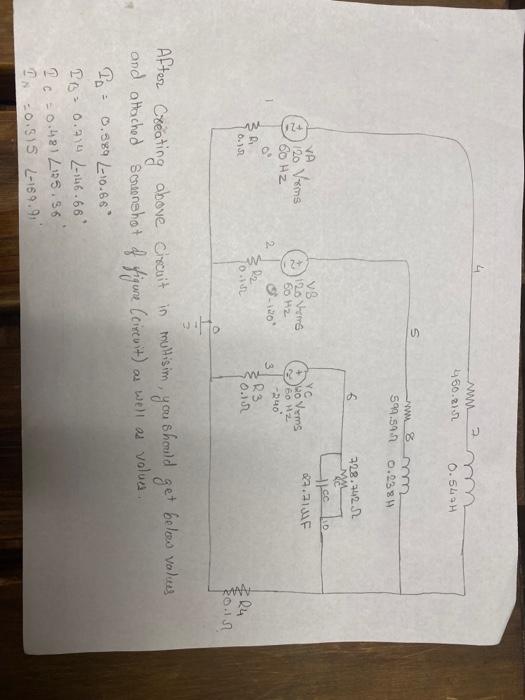 4
450.81Ω
7
0.547H
5
599.59Ω
8
0.238H
6
728.742Ω
RC
CC
10
27.71μF
1
VA
120 Vrms
60 Hz
0°
R1
0.1Ω
2
VB
120 Vrms
60 Hz
-120°
R2
0.1Ω
3
VC
120 Vrms
60 Hz
-240°
R3
0.1Ω
0
R4
0.1Ω
After Creating above Circuit in multisim, you should get below values
and attached Screenshot of figure (circuit) as well as values.
= 0.589 ∠-10.66°
IB = 0.714 ∠-146.66°
IC = 0.481 ∠125.36°
IN = 0.515 ∠-169.91°